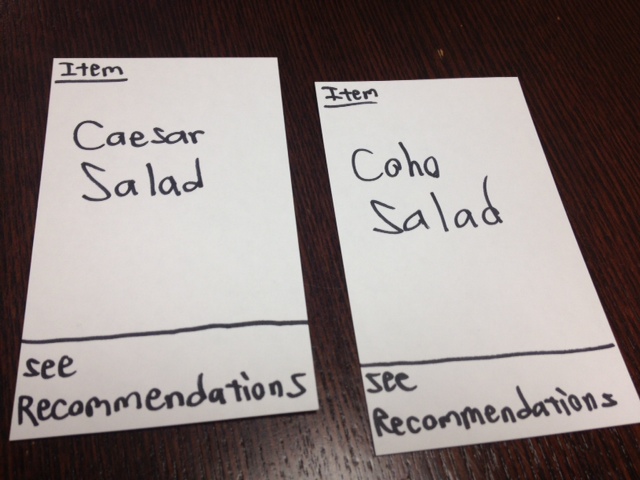 Item
Caesar
Salad
see
Recommendations
Item
Coho
Salad
see
Recommendations